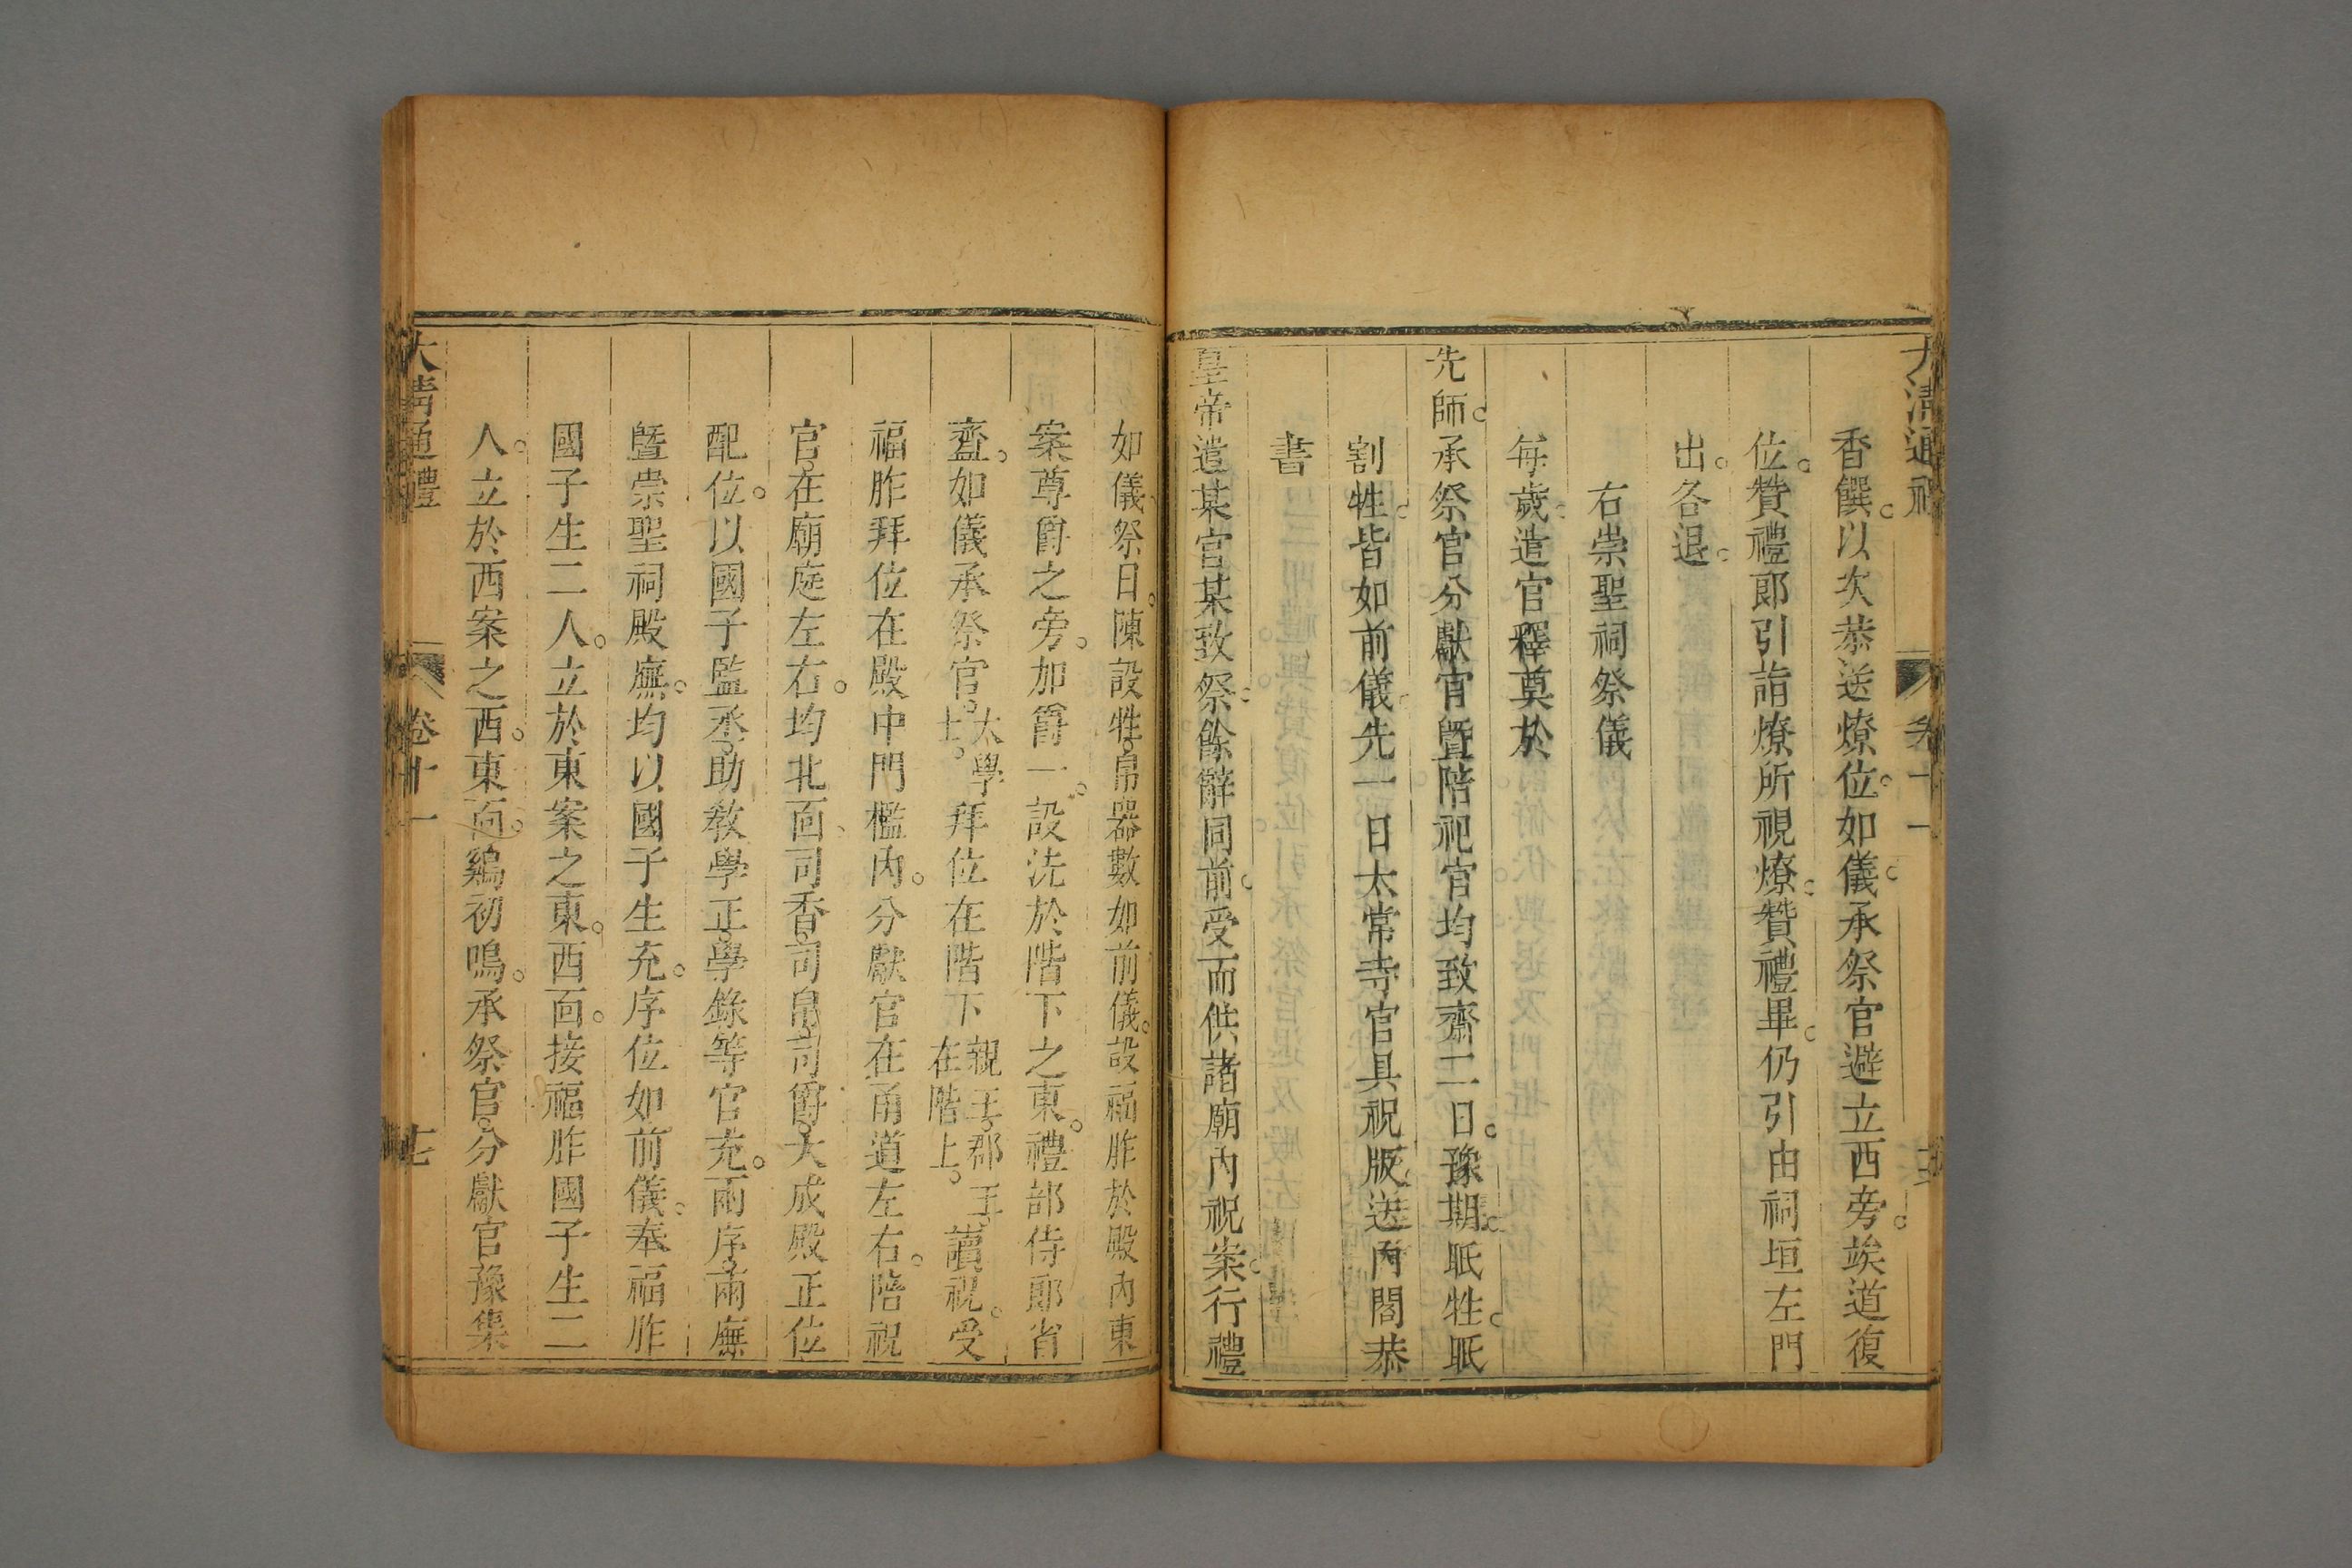 大清通禮 卷十一
香饌。以次恭送燎位。如儀。承祭官避立西旁。竢道復
位。贊禮郎引詣燎所視燎。贊禮畢。仍引由祠垣左門
出。各退。
右崇聖祠祭儀
每歲。遣官釋奠於
先師。承祭官分獻官暨陪祀官均致齋二日。豫期。眂牲。眂
割牲。皆如前儀。先一日太常寺官具祝版。送內閣恭
書
皇帝遣某官某致祭。餘辭同前。受而供諸廟內祝案。行禮
如儀。祭日。陳設牲帛器數如前儀。設福胙於殿內東
案尊爵之旁。加爵一。設洗於階下之東。禮部侍郎省
齍。如儀。承祭官。太學上。拜位在階下親王。郡王。在階上。讀祝。受
福胙拜位在殿中門檻內。分獻官在甬道左右。陪祀
官。在廟庭左右。均北面。司香。司帛。司爵。大成殿正位
配位。以國子監丞。助教。學正。學錄等官充。兩序。兩廡
暨崇聖祠殿廡。均以國子生充。序位如前儀。奉福胙
國子生二人。立於東案之東。西面。接福胙國子生二
人。立於西案之西。東面。鷄初鳴。承祭官。分獻官豫集
大清通禮 卷十一 七